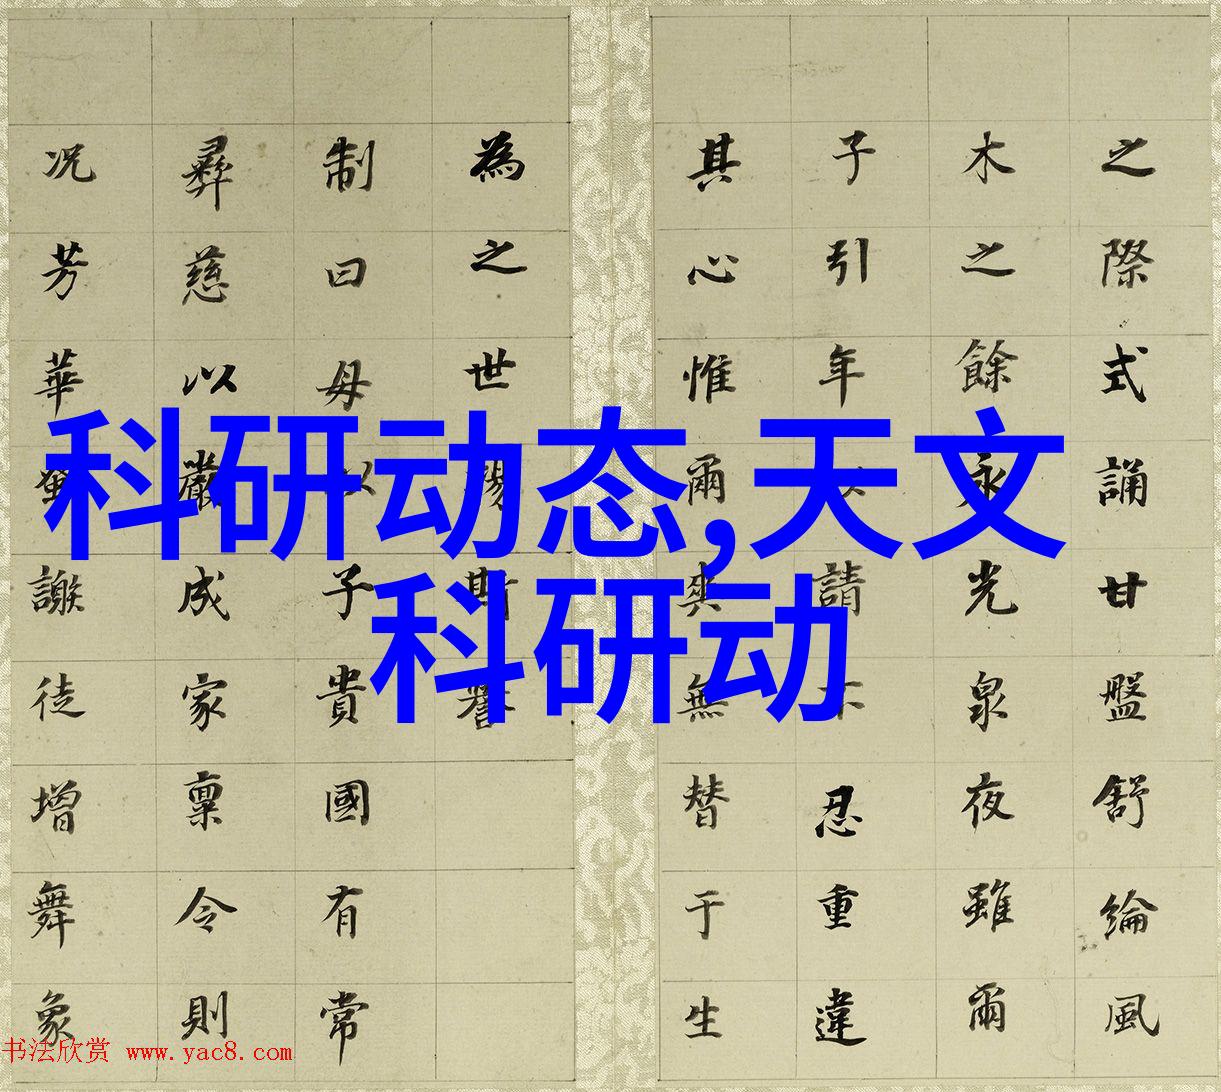 科研动态,天文
科研动
之際式誦甘盤舒綸風
木之餘永光泉夜雖爾
子引年請不忍重違
其心惟爾爽無替于生
為之世斯
制曰母以子貴國有常
彝慈以嚴成家稟令則
况芳華謝徒增舞象
书法欣赏 www.yac8.com